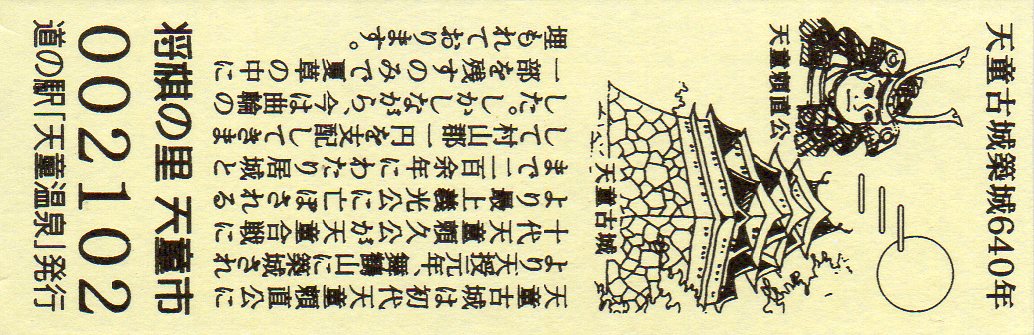 天童古城築城640年
天童頼直公
天童古城
天童古城は初代天童頼直公に
より天授元年、舞鶴山に築城され
十代天童頼久公が天童合戦に
より最上義光公に亡ぼされる
まで二百余年にわたり居城と
して村山郡一円を支配してきま
した。しかしながら、今は曲輪の
一部を残すのみで夏草の中に
埋もれております。
将棋の里 天童市
002102
道の駅「天童温泉」発行